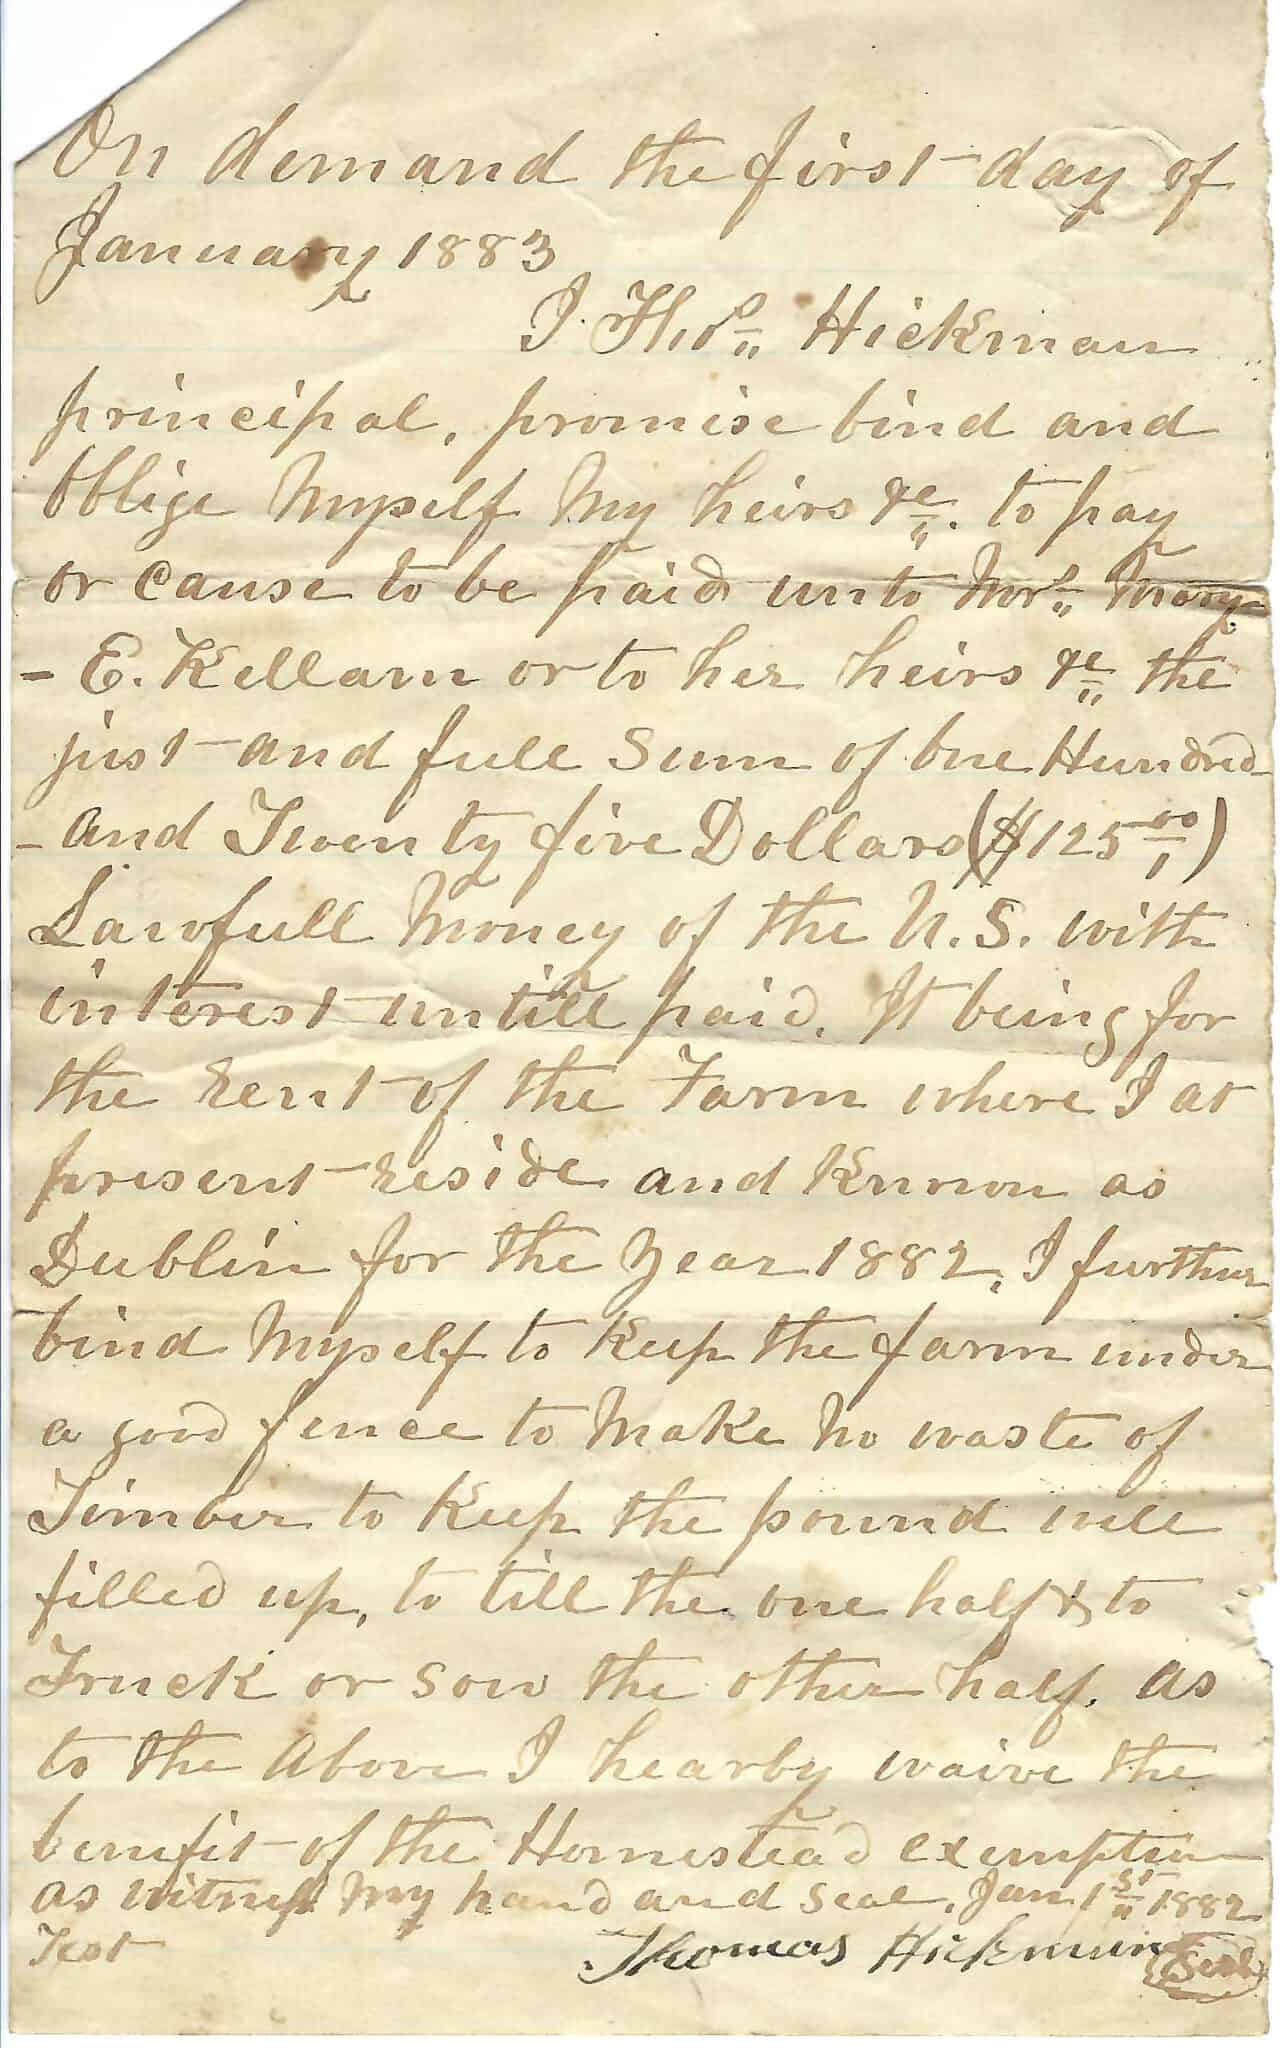 On demand the first day of
January 1883
I Thos. Hickman
principal, promise bind and
Oblige Myself My heirs &c. to pay
or cause to be paid unto Mrs. Mary
- E. Kellam or to her heirs &c the
just and full Sum of One Hundred
- and Twenty five Dollars ($125 00/1)
Lawfull Money of the U.S. with
interest untill paid. It being for
the Rent of the Farm where I at
present reside and Known as
Dublin for the Year 1882, I further
bind Myself to Keep the farm under
a good fence to Make No waste of
Timber to Keep the pound well
filled up, to till the one half & to
Truck or Sow the other half. as
to the Above I hearby waive the
benefit of the Homestead exemption
as witness My hand and Seal, Jan 1st 1882
Test Thomas Hickman Seal